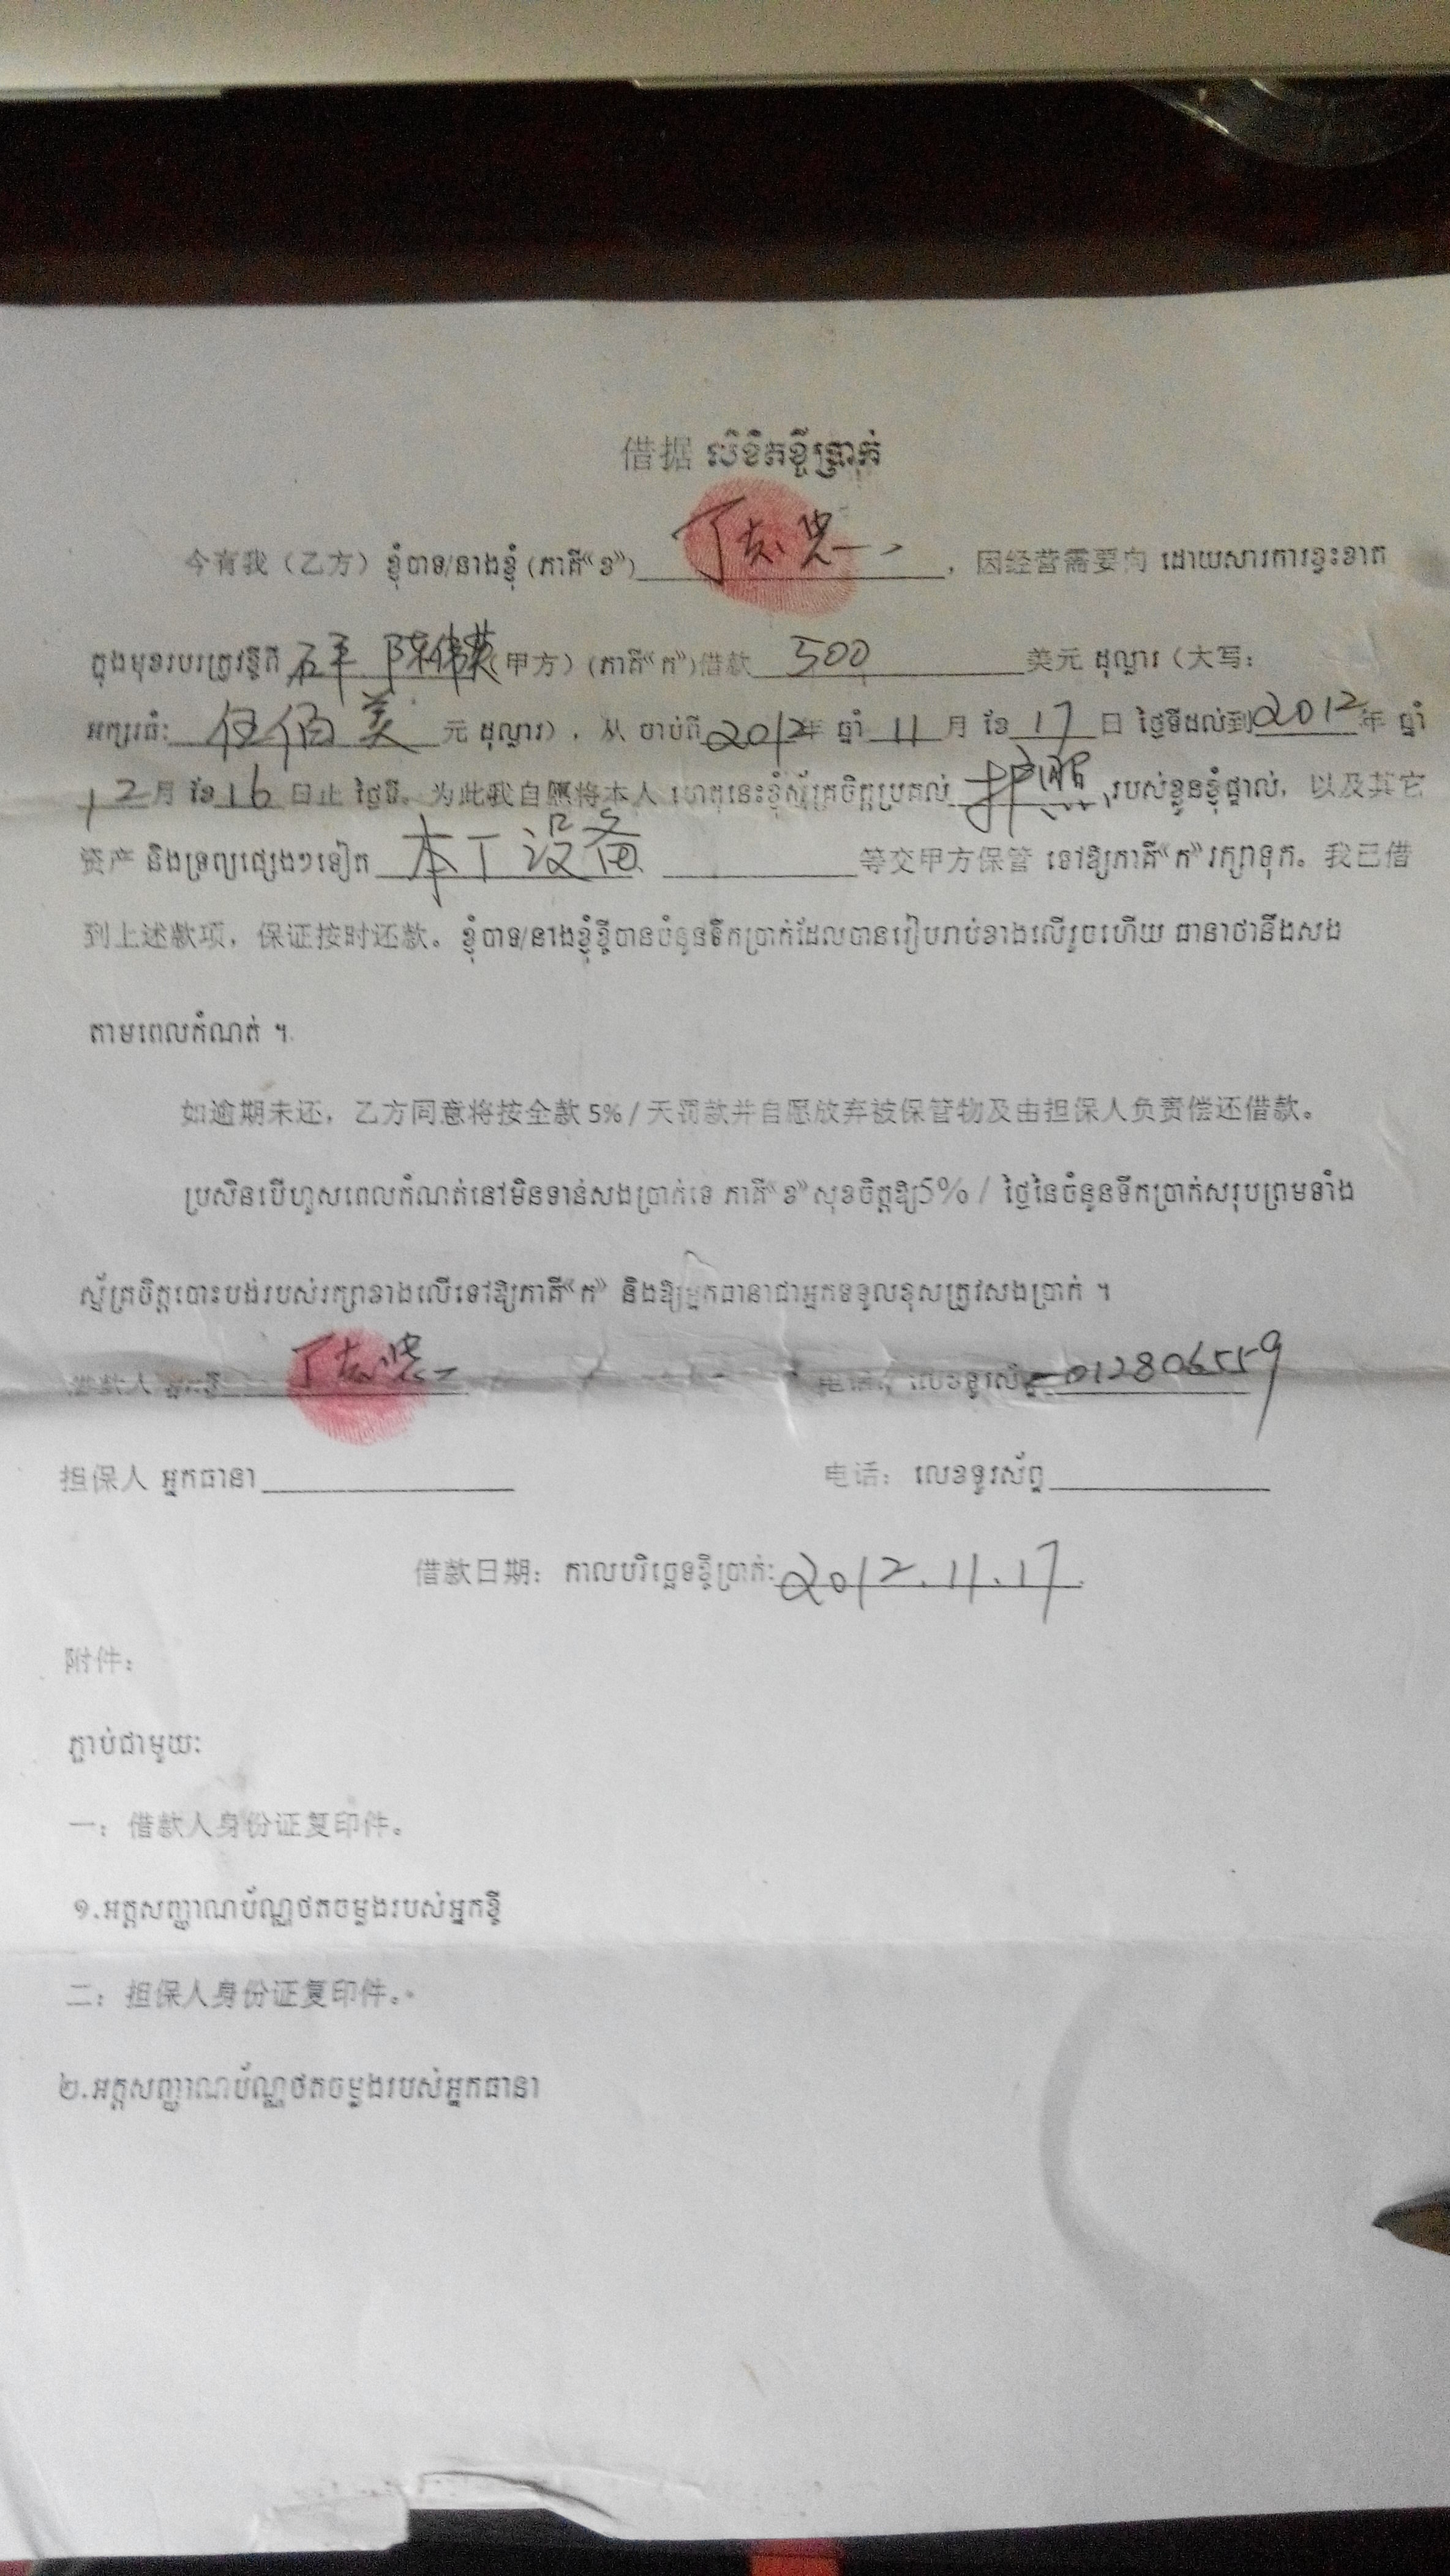 借据 លិខិតខ្ចីប្រាក់
今有我（乙方）ខ្ញុំបាទ/នាងខ្ញុំ (ភាគី“ខ”) 丁志 ，因经营需要向 ដោយសារការខ្វះខាត
ក្នុងមុខរបរត្រូវខ្ចីពី 陈伟 （甲方）(ភាគី“ក”)借款 500 美元 ដុល្លារ（大写：
អក្សរធំ: 伍佰美 元 ដុល្លារ），从 ចាប់ពី 2012 年 ឆ្នាំ 11 月 ខែ 17 日 ថ្ងៃទីដល់到 2012 年 ឆ្នាំ
12 月 ខែ 16 日止 ថ្ងៃទី。为此我自愿将本人 ហេតុនេះខ្ញុំស្ម័គ្រចិត្តប្រគល់ 护照 របស់ខ្លួនខ្ញុំផ្ទាល់，以及其它
资产 និងទ្រព្យផ្សេងៗទៀត 木工设备 等交甲方保管 ទៅឱ្យភាគី“ក”រក្សាទុក。我已借
到上述款项，保证按时还款。ខ្ញុំបាទ/នាងខ្ញុំខ្ចីបានចំនួនទឹកប្រាក់ដែលបានរៀបរាប់ខាងលើរួចហើយ ធានាថានឹងសង
តាមពេលកំណត់ ។
如逾期未还，乙方同意将按全款 5% / 天罚款并自愿放弃被保管物及由担保人负责偿还借款。
ប្រសិនបើហួសពេលកំណត់នៅមិនទាន់សងប្រាក់ទេ ភាគី“ខ”សុខចិត្តឱ្យ5% / ថ្ងៃនៃចំនួនទឹកប្រាក់សរុបព្រមទាំង
ស្ម័គ្រចិត្តបោះបង់របស់រក្សាខាងលើទៅឱ្យភាគី“ក” និងឱ្យអ្នកធានាជាអ្នកទទួលខុសត្រូវសងប្រាក់ ។
借款人 អ្នកខ្ចី 丁志 电话：លេខទូរស័ព្ទ 012806559
担保人 អ្នកធានា 电话：លេខទូរស័ព្ទ
借款日期：កាលបរិច្ឆេទខ្ចីប្រាក់: 2012.11.17
附件：
ភ្ជាប់ជាមួយ:
一：借款人身份证复印件。
១.អត្តសញ្ញាណប័ណ្ណថតចម្លងរបស់អ្នកខ្ចី
二：担保人身份证复印件。
២.អត្តសញ្ញាណប័ណ្ណថតចម្លងរបស់អ្នកធានា